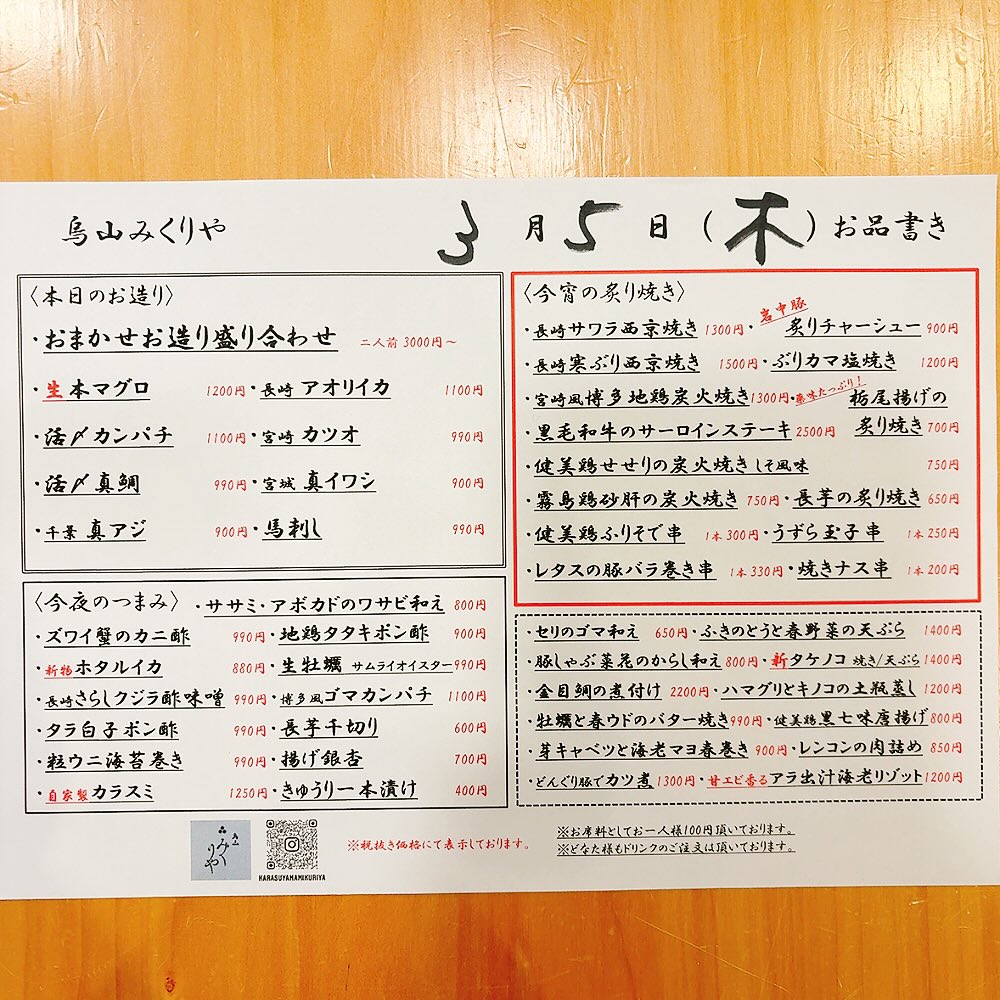 烏山みくりや
3月5日(木)お品書き
〈本日のお造り〉
・おまかせお造り盛り合わせ 二人前 3000円~
・生本マグロ 1200円・長崎 アオリイカ 1100円
・活〆カンパチ 1100円・宮崎 カツオ 990円
・活〆真鯛 990円・宮城 真イワシ 900円
・千葉 真アジ 900円・馬刺し 990円
〈今夜のつまみ〉・ササミ・アボカドのワサビ和え 800円
・ズワイ蟹のカニ酢 990円・地鶏タタキポン酢 900円
・新物ホタルイカ 880円・生牡蠣 サムライオイスター 990円
・長崎さらしクジラ酢味噌 990円・博多風ゴマカンパチ 1100円
・タラ白子ポン酢 990円・長芋千切り 600円
・粒ウニ海苔巻き 990円・揚げ銀杏 700円
・自家製カラスミ 1250円・きゅうり一本漬け 400円
〈今宵の炙り焼き〉
・長崎サワラ西京焼き 1300円・岩中豚 炙りチャーシュー 900円
・長崎寒ぶり西京焼き 1500円・ぶりカマ塩焼き 1200円
・宮崎風博多地鶏炭火焼き 1300円・薬味たっぷり!栃尾揚げの
・黒毛和牛のサーロインステーキ 2500円 炙り焼き 700円
・健美鶏せせりの炭火焼き しそ風味 750円
・霧島鶏砂肝の炭火焼き 750円・長芋の炙り焼き 650円
・健美鶏ふりそで串 1本 300円・うずら玉子串 1本 250円
・レタスの豚バラ巻き串 1本 330円・焼きナス串 1本 200円
・セリのゴマ和え 650円・ふきのとうと春野菜の天ぷら 1400円
・豚しゃぶ菜花のからし和え 800円・新タケノコ 焼き/天ぷら 1400円
・金目鯛の煮付け 2200円・ハマグリとキノコの土瓶蒸し 1200円
・牡蠣と春ウドのバター焼き 990円・健美鶏黒七味唐揚げ 800円
・芽キャベツと海老マヨ春巻き 900円・レンコンの肉詰め 850円
・どんぐり豚でカツ煮 1300円・甘エビ香るアラ出汁海老リゾット 1200円
みくりや
HARASUYAMAMIKURIYA
※税抜き価格にて表示しております。
※お席料としてお一人様100円頂いております。
※どなた様もドリンクのご注文は頂いております。